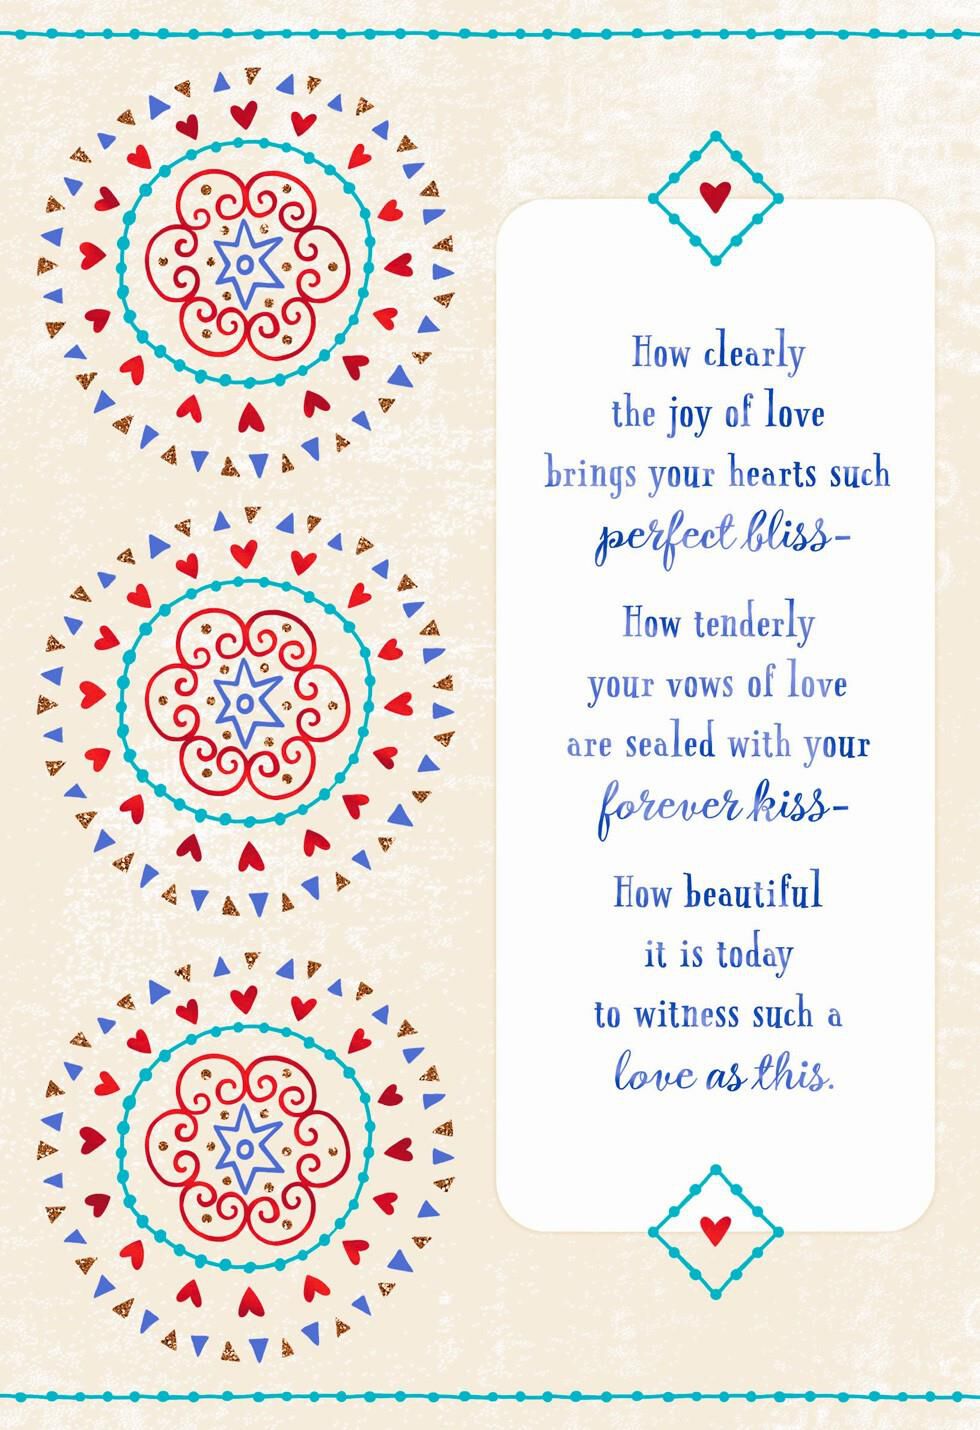 How clearly
the joy of love
brings your hearts such
perfect bliss–
How tenderly
your vows of love
are sealed with your
forever kiss–
How beautiful
it is today
to witness such a
love as this.